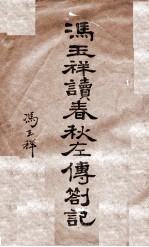 馮玉祥讀春秋左傳劄記
馮玉祥